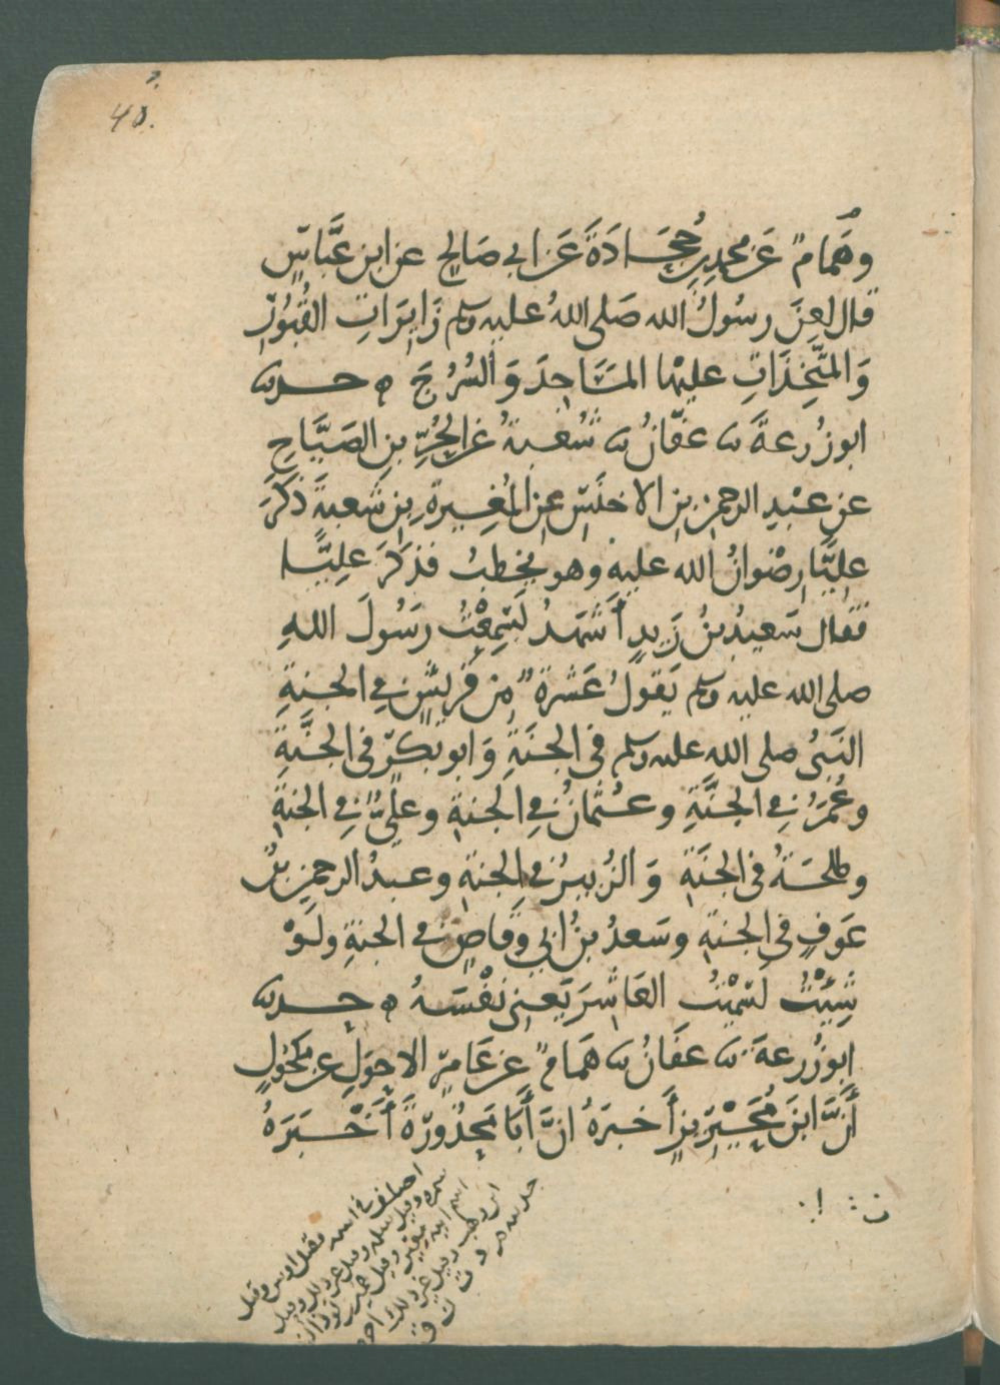 40.
وهَمامٌ عَن محمدِ بن جُحَادَةَ عَن ابي صَالِحٍ عن ابن عَبَّاسٍ
قال لعن رسُولُ الله صَلى اللهُ عليه وسلم زَايِرَاتِ القُبُورِ
وَالمتَّخِذَاتِ عليها المسَاجِدَ وَالسُرُجَ ه حدثنا
ابو زُرعةَ نا عفّانُ نا شُعْبةُ عن الحُرِّ بنِ الصَيَّاحِ
عن عبْدِ الرحمنِ بنِ الاخنَسِ عن المُغِيرةِ بنِ شُعبةَ ذكَرَ
عليًّا رِضْوانُ الله عليهِ وهو يخطبُ فذكَرَ علِيًّا
فقال سَعيدُ بنُ زَيدٍ أَشهَدُ لَسَمِعْتُ رسُولَ اللهِ
صلى الله عليه وسلم يَقولُ عَشرةٌ مِن قُريشٍ فِي الجنةِ
النَبيُ صلى الله عليه وسلم في الجنَةِ وَابو بَكرٍ في الجنَّةِ
وعُمَرُ فِي الجنَّةِ وعُثمانُ فِي الجنةِ وعليٌّ فِي الجنةِ
وطلحَةُ في الجنَةِ وَالزُبيرُ في الجنةِ وعبدُ الرحمنِ بنُ
عَوفٍ في الجنةِ وسَعدُ بنُ ابي وقَاصٍ في الجنةِ ولَوْ
شِئْتُ لسَمَّيْتُ العَاشِرَ يَعني نَفْسَهُ ه حدثنا
ابو زُرعةَ نا عفَانُ نا هَمامٌ عن عَامِرٍ الاحوَلِ عن مَكحُولٍ
أنَّ ابنَ مُحَيْرِيزٍ أَخبرَهُ انَّ أَبَا مَحذُورَةَ أَخْبَرَهُ
اختلف في اسمه فقيل اوس وقيل
سمرة وقيل سلمة وقيل